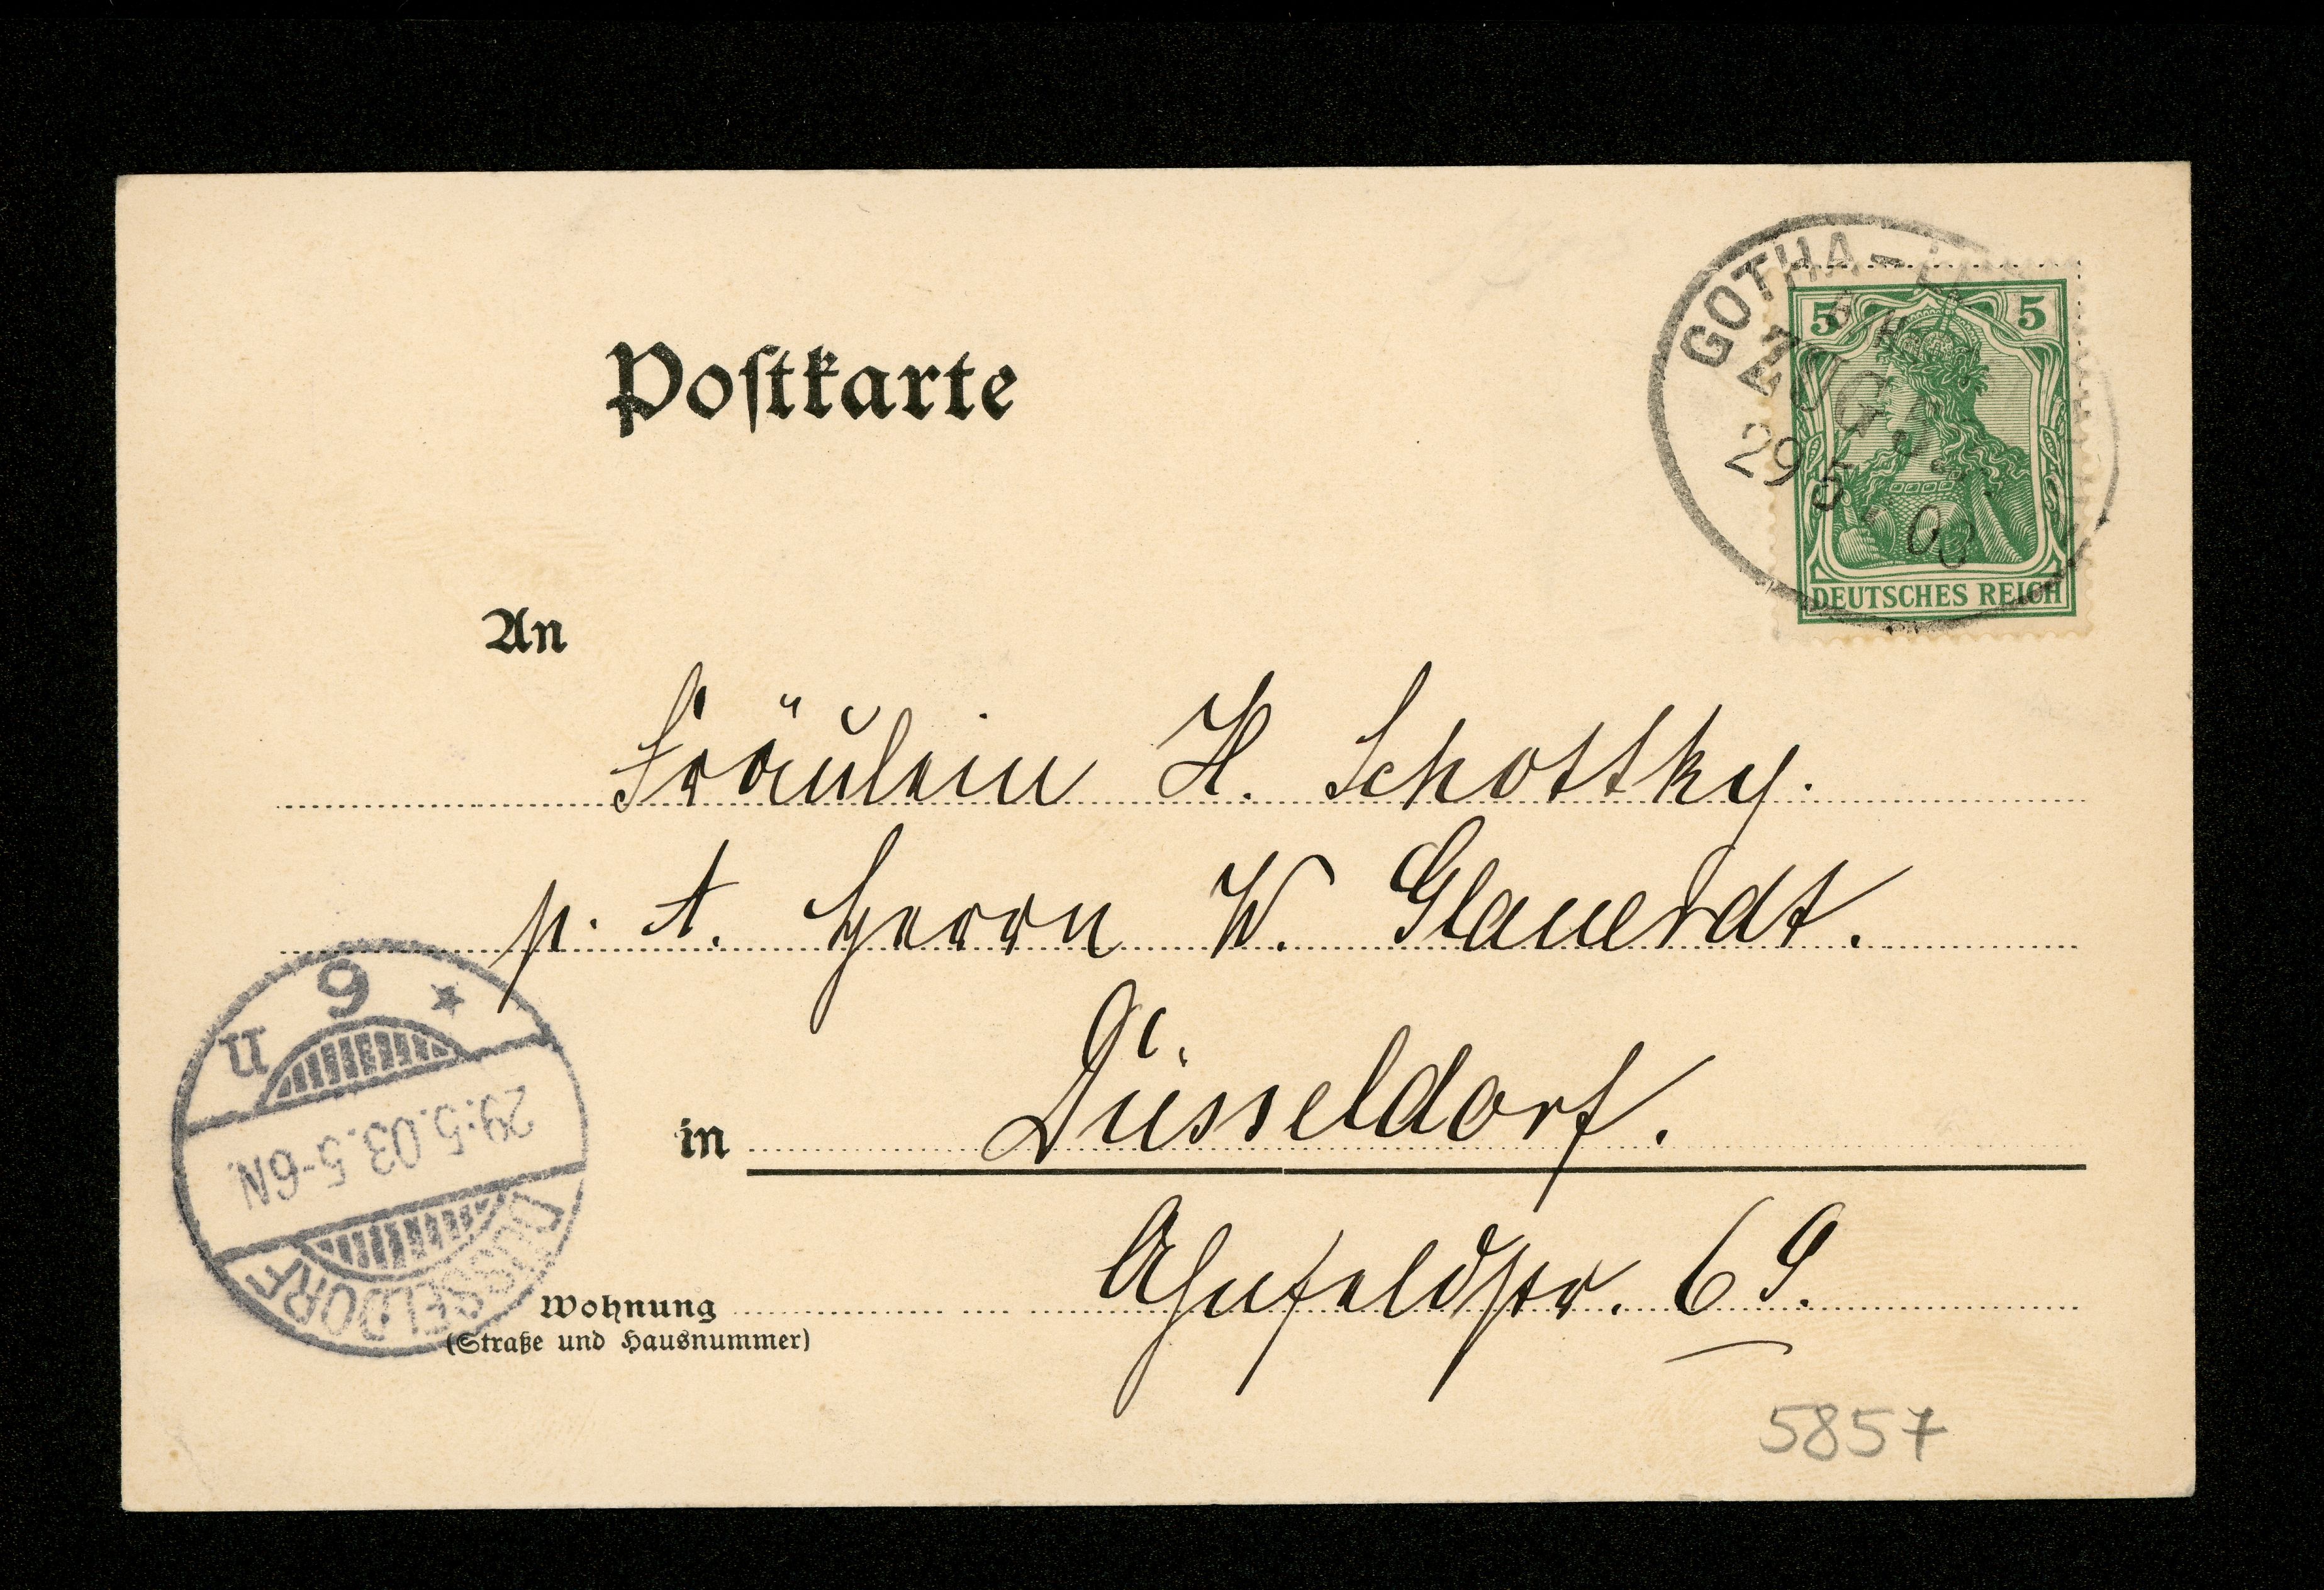 Postkarte
GOTHA-
ZUG
29 5 . 03
5 5
DEUTSCHES REICH
An
Fräulein H. Schottky.
p. A. Herrn W.
in Düsseldorf.
Wohnung Ahnfeldstr. 69.
(Straße und Hausnummer)
DÜSSELDORF
29.5.03. 5-6N.
* 9 u
5857